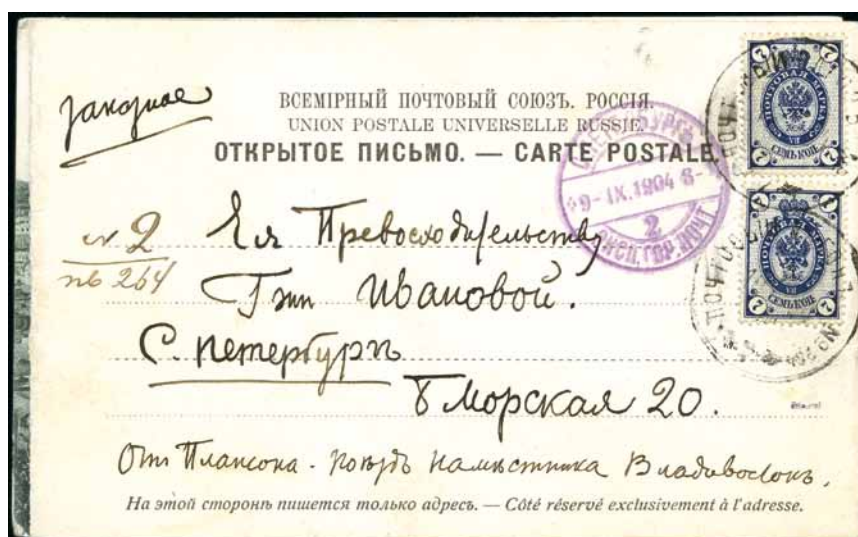 заказное
ВСЕМІРНЫЙ ПОЧТОВЫЙ СОЮЗЪ. РОССІЯ.
UNION POSTALE UNIVERSELLE RUSSIE.
ОТКРЫТОЕ ПИСЬМО. — CARTE POSTALE.
7 7
ПОЧТОВАЯ МАРКА
СЕМЬ КОП.
7 7
7 7
ПОЧТОВАЯ МАРКА
СЕМЬ КОП.
7 7
9-IX.1904
2
ЭКСП.ГОР.ПОЧТ.
№ 2
264
Ея Превосходительству
Гжѣ Ивановой.
С. Петербургъ
Б Морская 20.
Отъ Плансона - поѣздъ Намѣстника Владивостокъ.
На этой сторонѣ пишется только адресъ. — Côté réservé exclusivement à l'adresse.